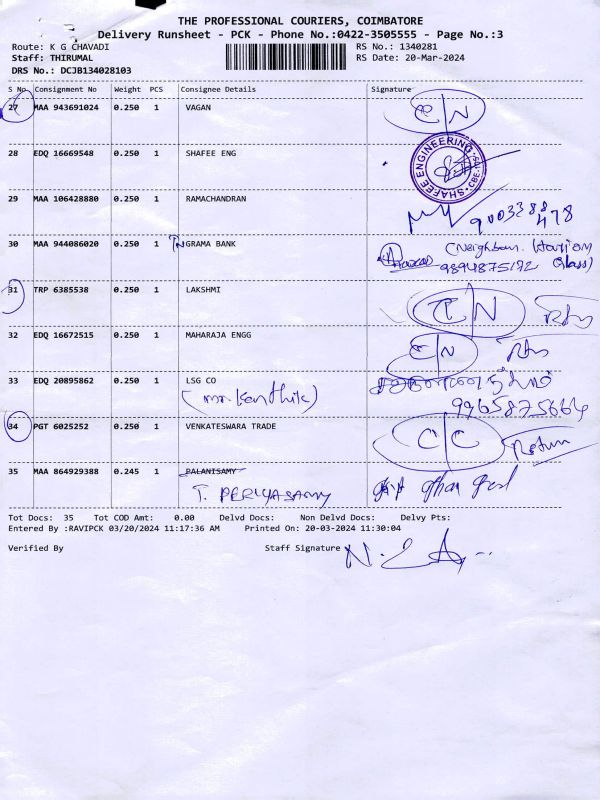 THE PROFESSIONAL COURIERS, COIMBATORE
Delivery Runsheet - PCK - Phone No.:0422-3505555 - Page No.:3
Route: K G CHAVADI
RS No.: 1340281
Staff: THIRUMAL
RS Date: 20-Mar-2024
DRS No.: DCJB134028103
S No Consignment No Weight PCS Consignee Details Signature
27 MAA 943691024 0.250 1 VAGAN C/N
28 EDQ 16669548 0.250 1 SHAFEE ENG
SHAFEE ENGINEERING CBE
29 MAA 106428880 0.250 1 RAMACHANDRAN
9003388478
30 MAA 944086020 0.250 1 TNGRAMA BANK
(Neighbour
9894875172 Glass)
31 TRP 6385538 0.250 1 LAKSHMI C N
32 EDQ 16672515 0.250 1 MAHARAJA ENGG C/N
33 EDQ 20895862 0.250 1 LSG CO
(Mr. Karthik)
9965875664
34 PGT 6025252 0.250 1 VENKATESWARA TRADE C/C Return
35 MAA 864929388 0.245 1 PALANISAMY
T. PERIYASAMY
Tot Docs: 35 Tot COD Amt: 0.00 Delvd Docs: Non Delvd Docs: Delvy Pts:
Entered By :RAVIPCK 03/20/2024 11:17:36 AM Printed On: 20-03-2024 11:30:04
Verified By Staff Signature